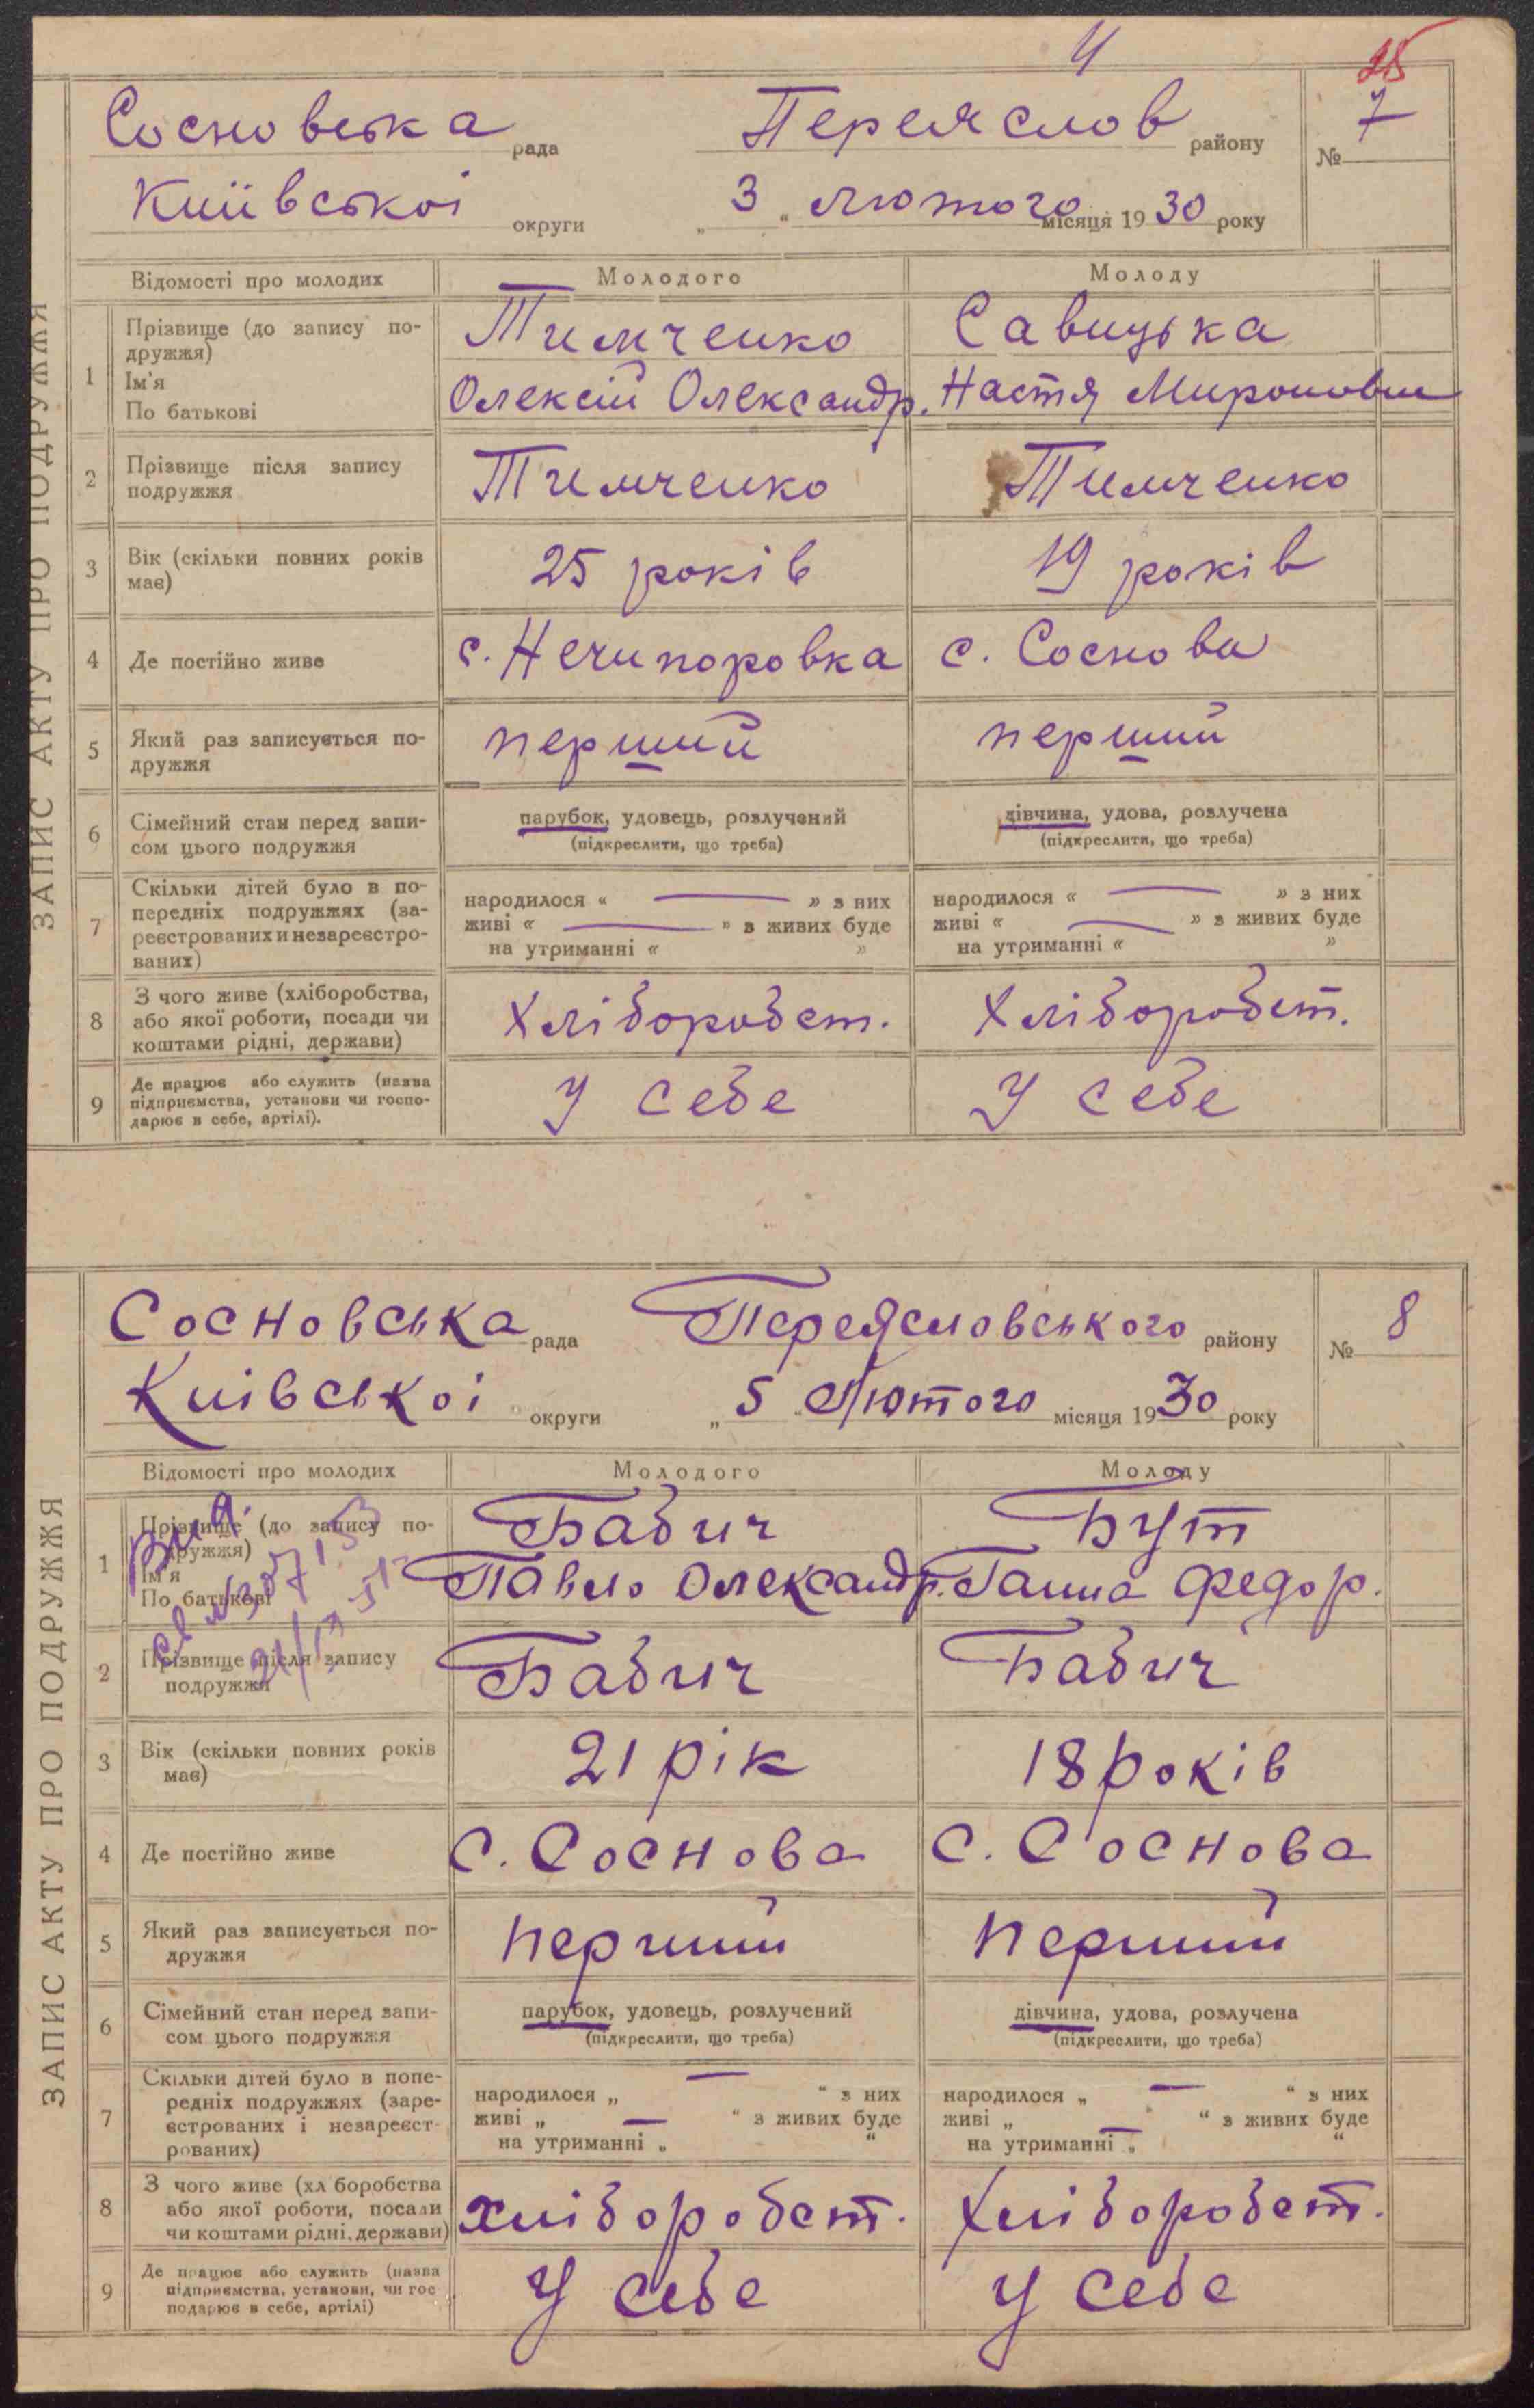 4
25
Сосновська рада Переяслов району № 7
Київської округи „ 3 “ лютого місяця 1930 року
ЗАПИС АКТУ ПРО ПОДРУЖЖЯ
Відомості про молодих Молодого Молоду
1 Прізвище (до запису по-
дружжя)
Ім'я
По батькові
Тимченко Савицька
Олексій Олександр. Настя Мироновни
2 Прізвище після запису
подружжя
Тимченко Тимченко
3 Вік (скільки повних років
має)
25 років 19 років
4 Де постійно живе с. Нечипоровка с. Соснова
5 Який раз записується по-
дружжя
перший перший
6 Сімейний стан перед запи-
сом цього подружжя
парубок, удовець, розлучений дівчина, удова, розлучена
(підкреслити, що треба) (підкреслити, що треба)
7 Скільки дітей було в по-
передніх подружжях (за-
реєстрованих и незареєстро-
ваних)
народилося « — » з них народилося « — » з них
живі « — » в живих буде живі « — » з живих буде
на утриманні « » на утриманні « »
8 З чого живе (хліборобства,
або якої роботи, посади чи
коштами рідні, держави)
Хліборобст. Хліборобст.
9 Де працює або служить (назва
підприємства, установи чи госпо-
дарює в себе, артілі).
У себе У себе
Сосновська рада Переясловського району № 8
Київської округи „ 5 “ Лютого місяця 1930 року
ЗАПИС АКТУ ПРО ПОДРУЖЖЯ
Відомості про молодих Молодого Молоду
1 Прізвище (до запису по-
дружжя)
Ім'я
По батькові
Бабич Бут
Павло Олександр. Ганна Федор.
2 Прізвище після запису
подружжя
Бабич Бабич
3 Вік (скільки повних років
має)
21 рік 18 років
4 Де постійно живе с. Соснова с. Соснова
5 Який раз записується по-
дружжя
перший перший
6 Сімейний стан перед запи-
сом цього подружжя
парубок, удовець, розлучений дівчина, удова, розлучена
(підкреслити, що треба) (підкреслити, що треба)
7 Скільки дітей було в попе-
редніх подружжях (заре-
єстрованих і незареєст
рованих)
народилося „ — “ з них народилося „ — “ з них
живі „ — “ з живих буде живі „ — “ з живих буде
на утриманні „ “ на утриманні „ “
8 З чого живе (хл боробства
або якої роботи, посади
чи коштами рідні, держави)
хліборобст. Хліборобст.
9 Де працює або служить (назва
підприємства, установи, чи гос
подарює в себе, артілі)
У себе У себе